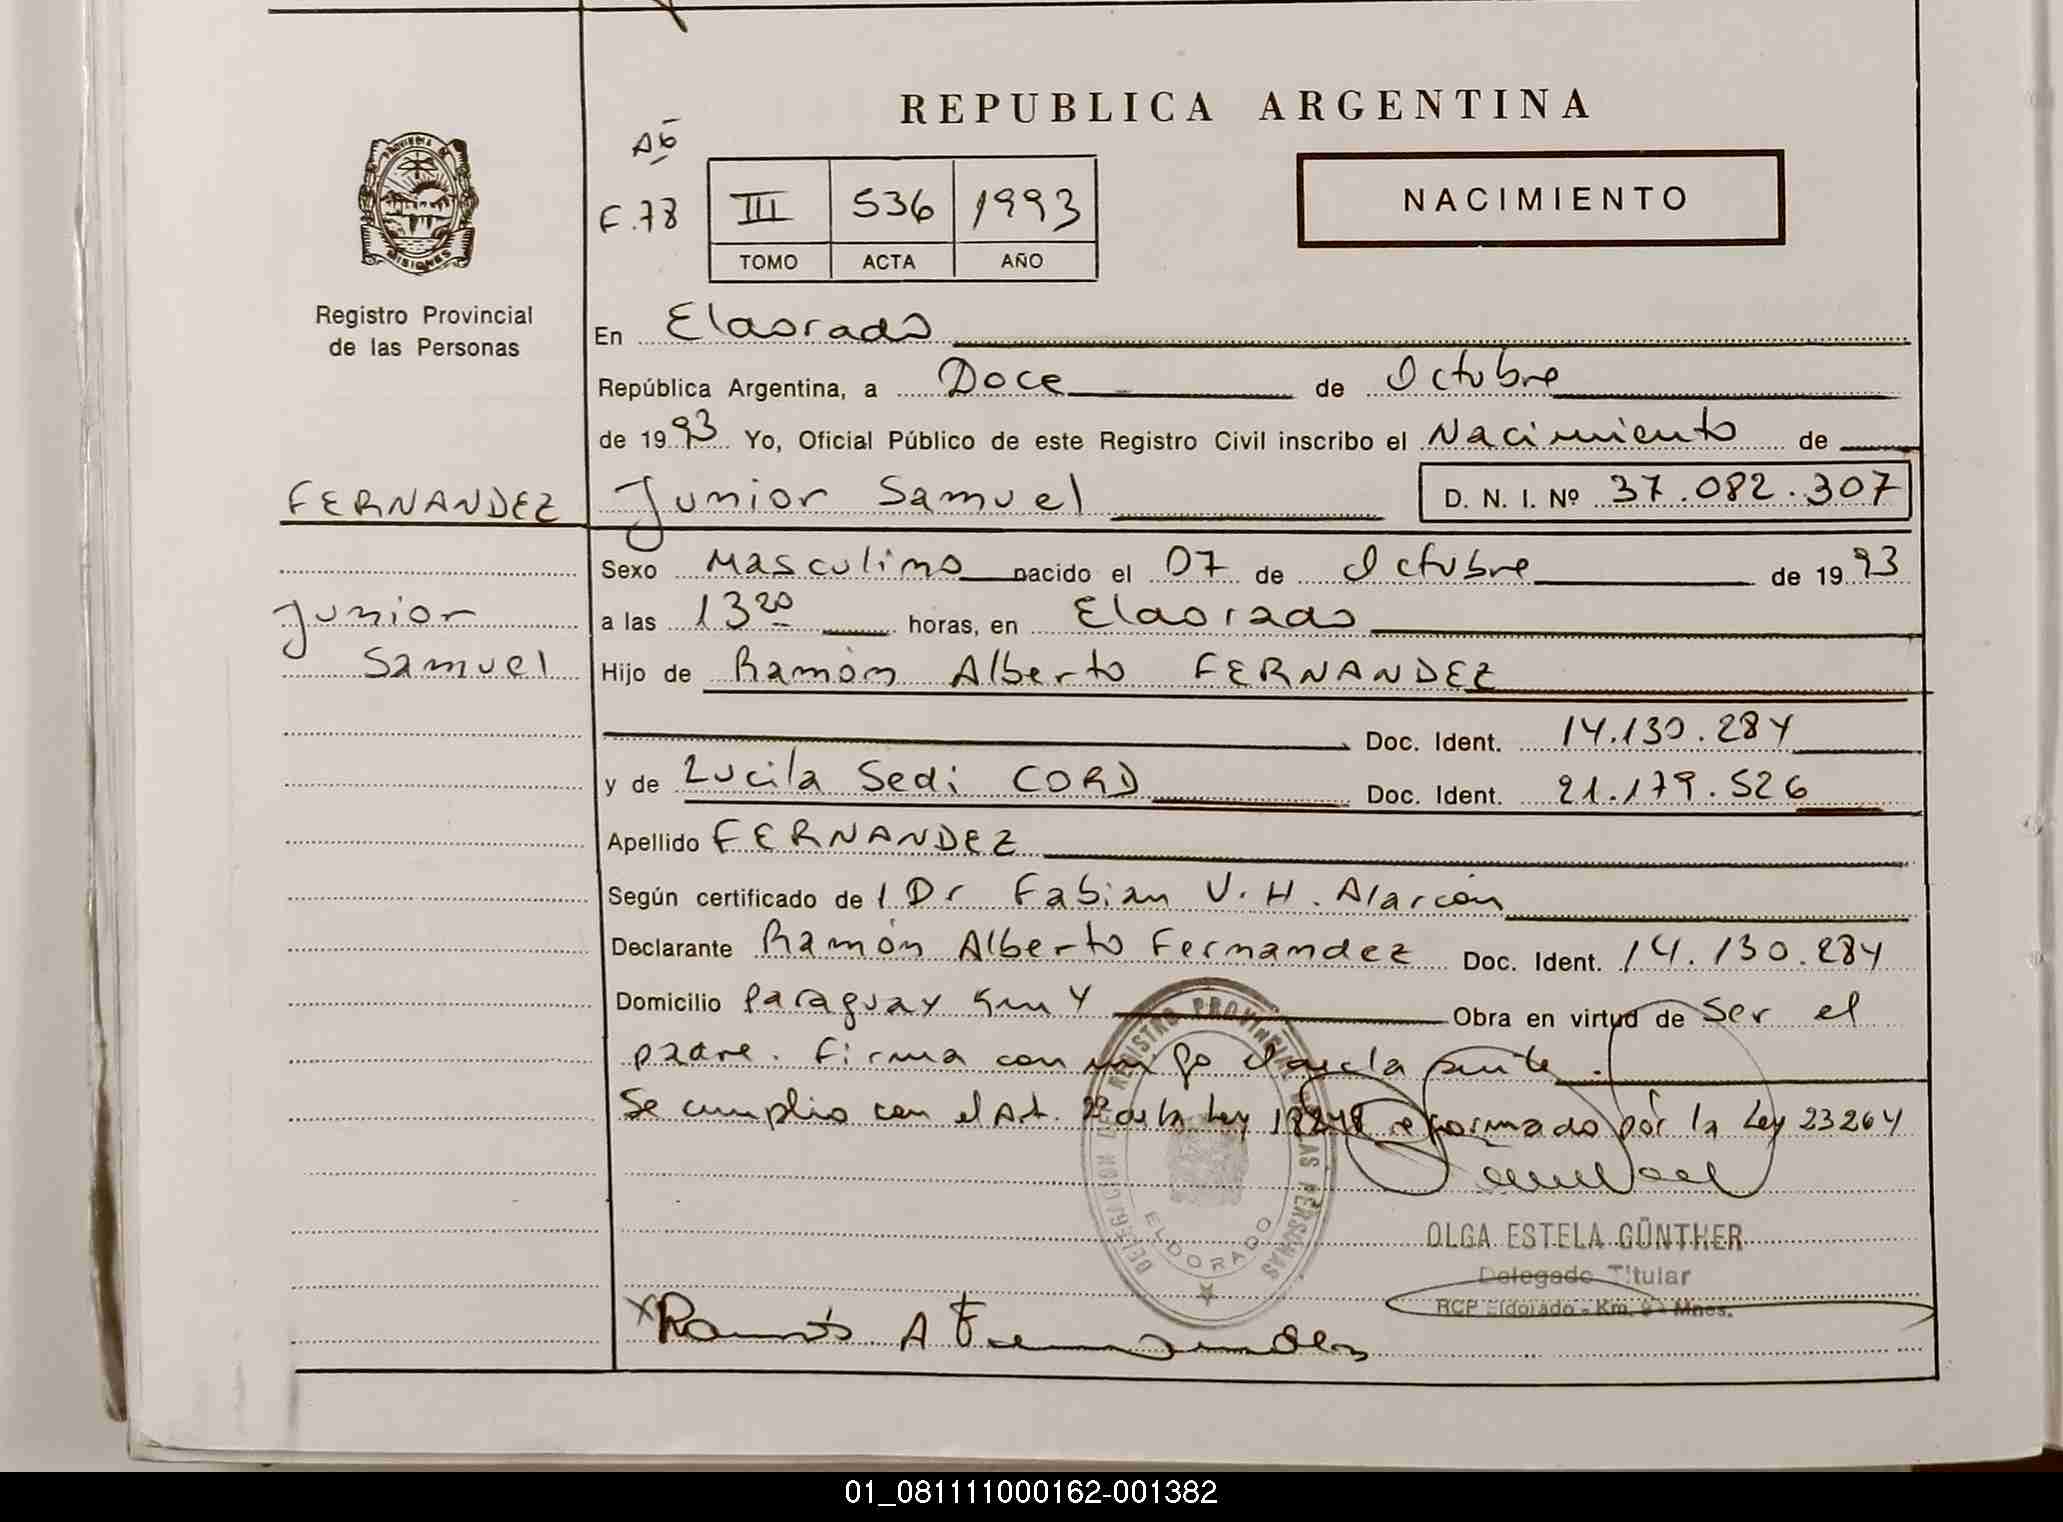 REPUBLICA ARGENTINA
A6
F.78
III 536 1993
TOMO ACTA AÑO
NACIMIENTO
PROVINCIA DE
MISIONES
Registro Provincial
de las Personas
En Eldorado
República Argentina, a Doce de Octubre
de 1993 Yo, Oficial Público de este Registro Civil inscribo el Nacimiento de
FERNANDEZ Junior Samuel D. N. I. Nº 37.082.307
Sexo Masculino nacido el 07 de Octubre de 1993
Junior
a las 13 20 horas, en Eldorado
Samuel
Hijo de Ramón Alberto FERNANDEZ
Doc. Ident. 14.130.284
y de Lucila Sedi CORD Doc. Ident. 21.179.526
Apellido FERNANDEZ
Según certificado de l Dr Fabian V. H. Alarcón
Declarante Ramón Alberto Fernandez Doc. Ident. 14.130.284
Domicilio Paraguay km 4 Obra en virtud de ser el
padre. Firma con
Se cumplio con el Art. 2º de la Ley 18248 reformado por la Ley 23264
DELEGACION DEL REGISTRO PROVINCIAL DE LAS PERSONAS
ELDORADO
OLGA ESTELA GÜNTHER
Delegado Titular
RCP Eldorado - Km. 9 - Mnes.
x Ramón A Fernandez
01_081111000162-001382